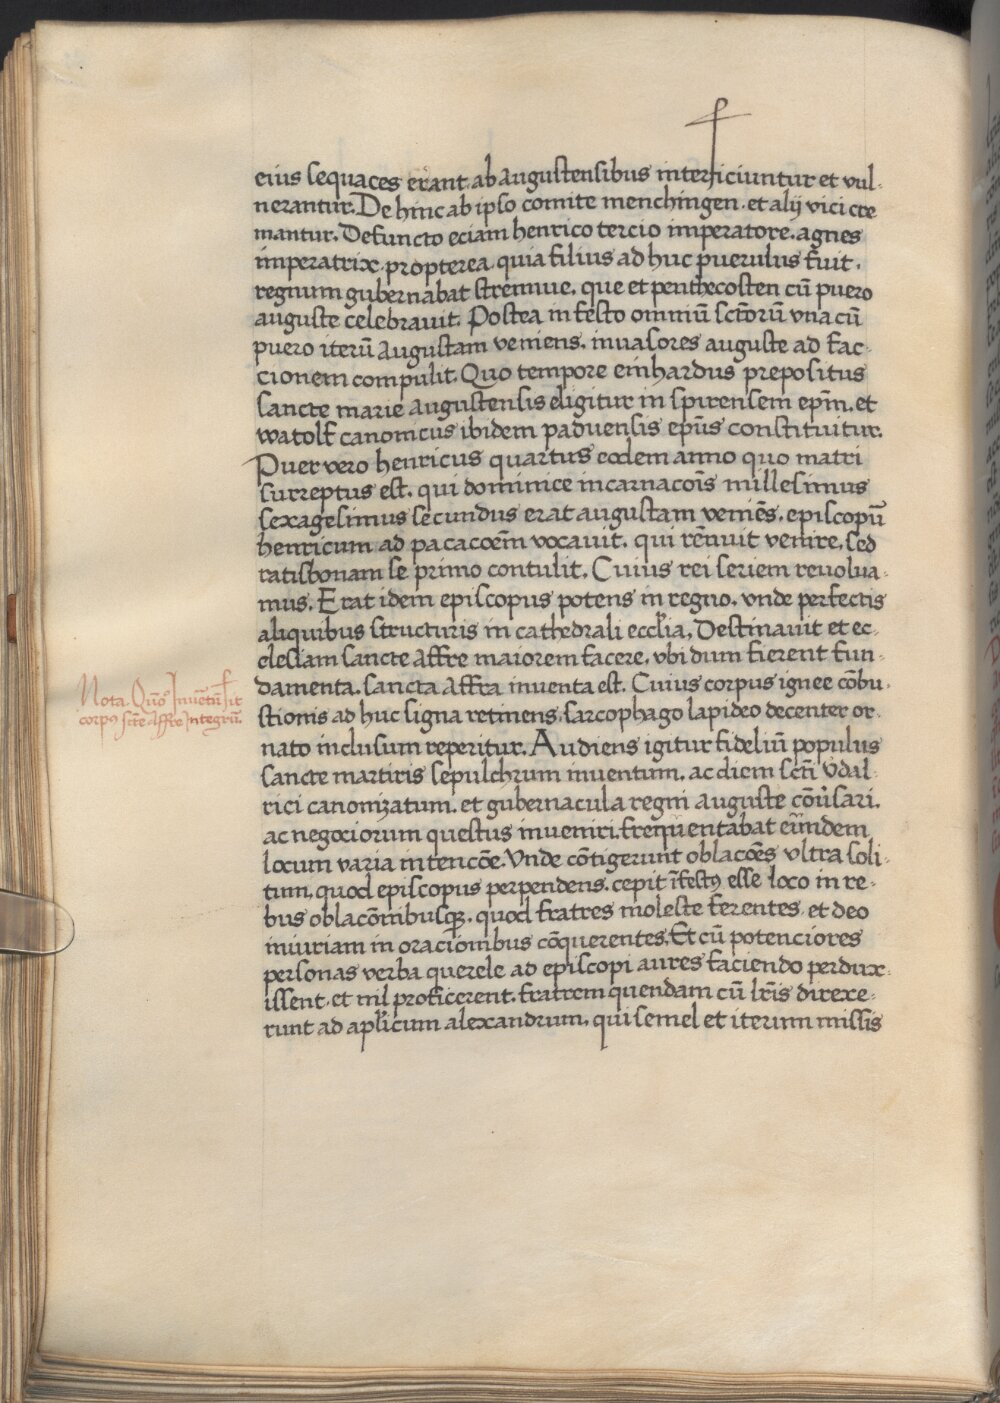 eius sequaces erant. ab augustensibus interficiuntur et vul-
nerantur. De hinc ab ipso comite menchingen. et alij vici cre
mantur. Defuncto eciam henrico tercio imperatore. agnes
imperatrix. propterea. quia filius ad huc puerulus fuit.
regnum gubernabat strennue. que et penthecosten cū puero
auguste celebravit. Postea in festo omniū sctōrū vna cū
puero iterū augustam veniens. invasores auguste ad fac-
cionem compulit. Quo tempore einhardus prepositus
sancte marie augustensis eligitur in spirensem epm̄. et
watolf canonicus ibidem paduensis epūs constituitur.
Puer vero henricus quartus eodem anno quo matri
surreptus est. qui dominice incarnacōis millesimus
sexagesimus secundus erat augustam veniēs. episcopū
henricum ad pacacōem vocavit. qui rēnuit venire. sed
ratisbonam se primo contulit. Cuius rei seriem revolua-
mus. Erat idem episcopus potens in regno. vnde perfectis
aliquibus structuris in cathedrali eccl̄ia. Destinavit et ec-
clesiam sancte Affre maiorem facere. vbi dum fierent fun-
damenta. sancta Affra inventa est. Cuius corpus ignee cōbu-
stionis ad huc signa retinens. sarcophago lapideo decenter or-
nato inclusum reperitur. Audiens igitur fideliū populus
sancte martiris sepulchrum inventum. ac diem sctī vdal-
rici canonizatum. et gubernacula regni auguste cōv̄sari.
ac negociorum questus inveniri. frequentabat eūndem
locum varia intencōe. Vnde cōtigerunt oblacōes vltra soli-
tum. quod episcopus perpendens. cepit īfestꝰ esse loco in re-
bus oblacōnibusqꝫ. quod fratres moleste ferentes. et deo
iniuriam in oracionibus cōquerentes. Et cū potenciores
personas verba querele ad episcopi aures faciendo perdux-
issent. et nil proficerent. fratrem quendam cū lrīs direxe-
runt ad apl̄icum alexandrum. qui semel et iterum missis
Nota. Quō Inuētū sit
corpꝰ sctē Affre Integrū.